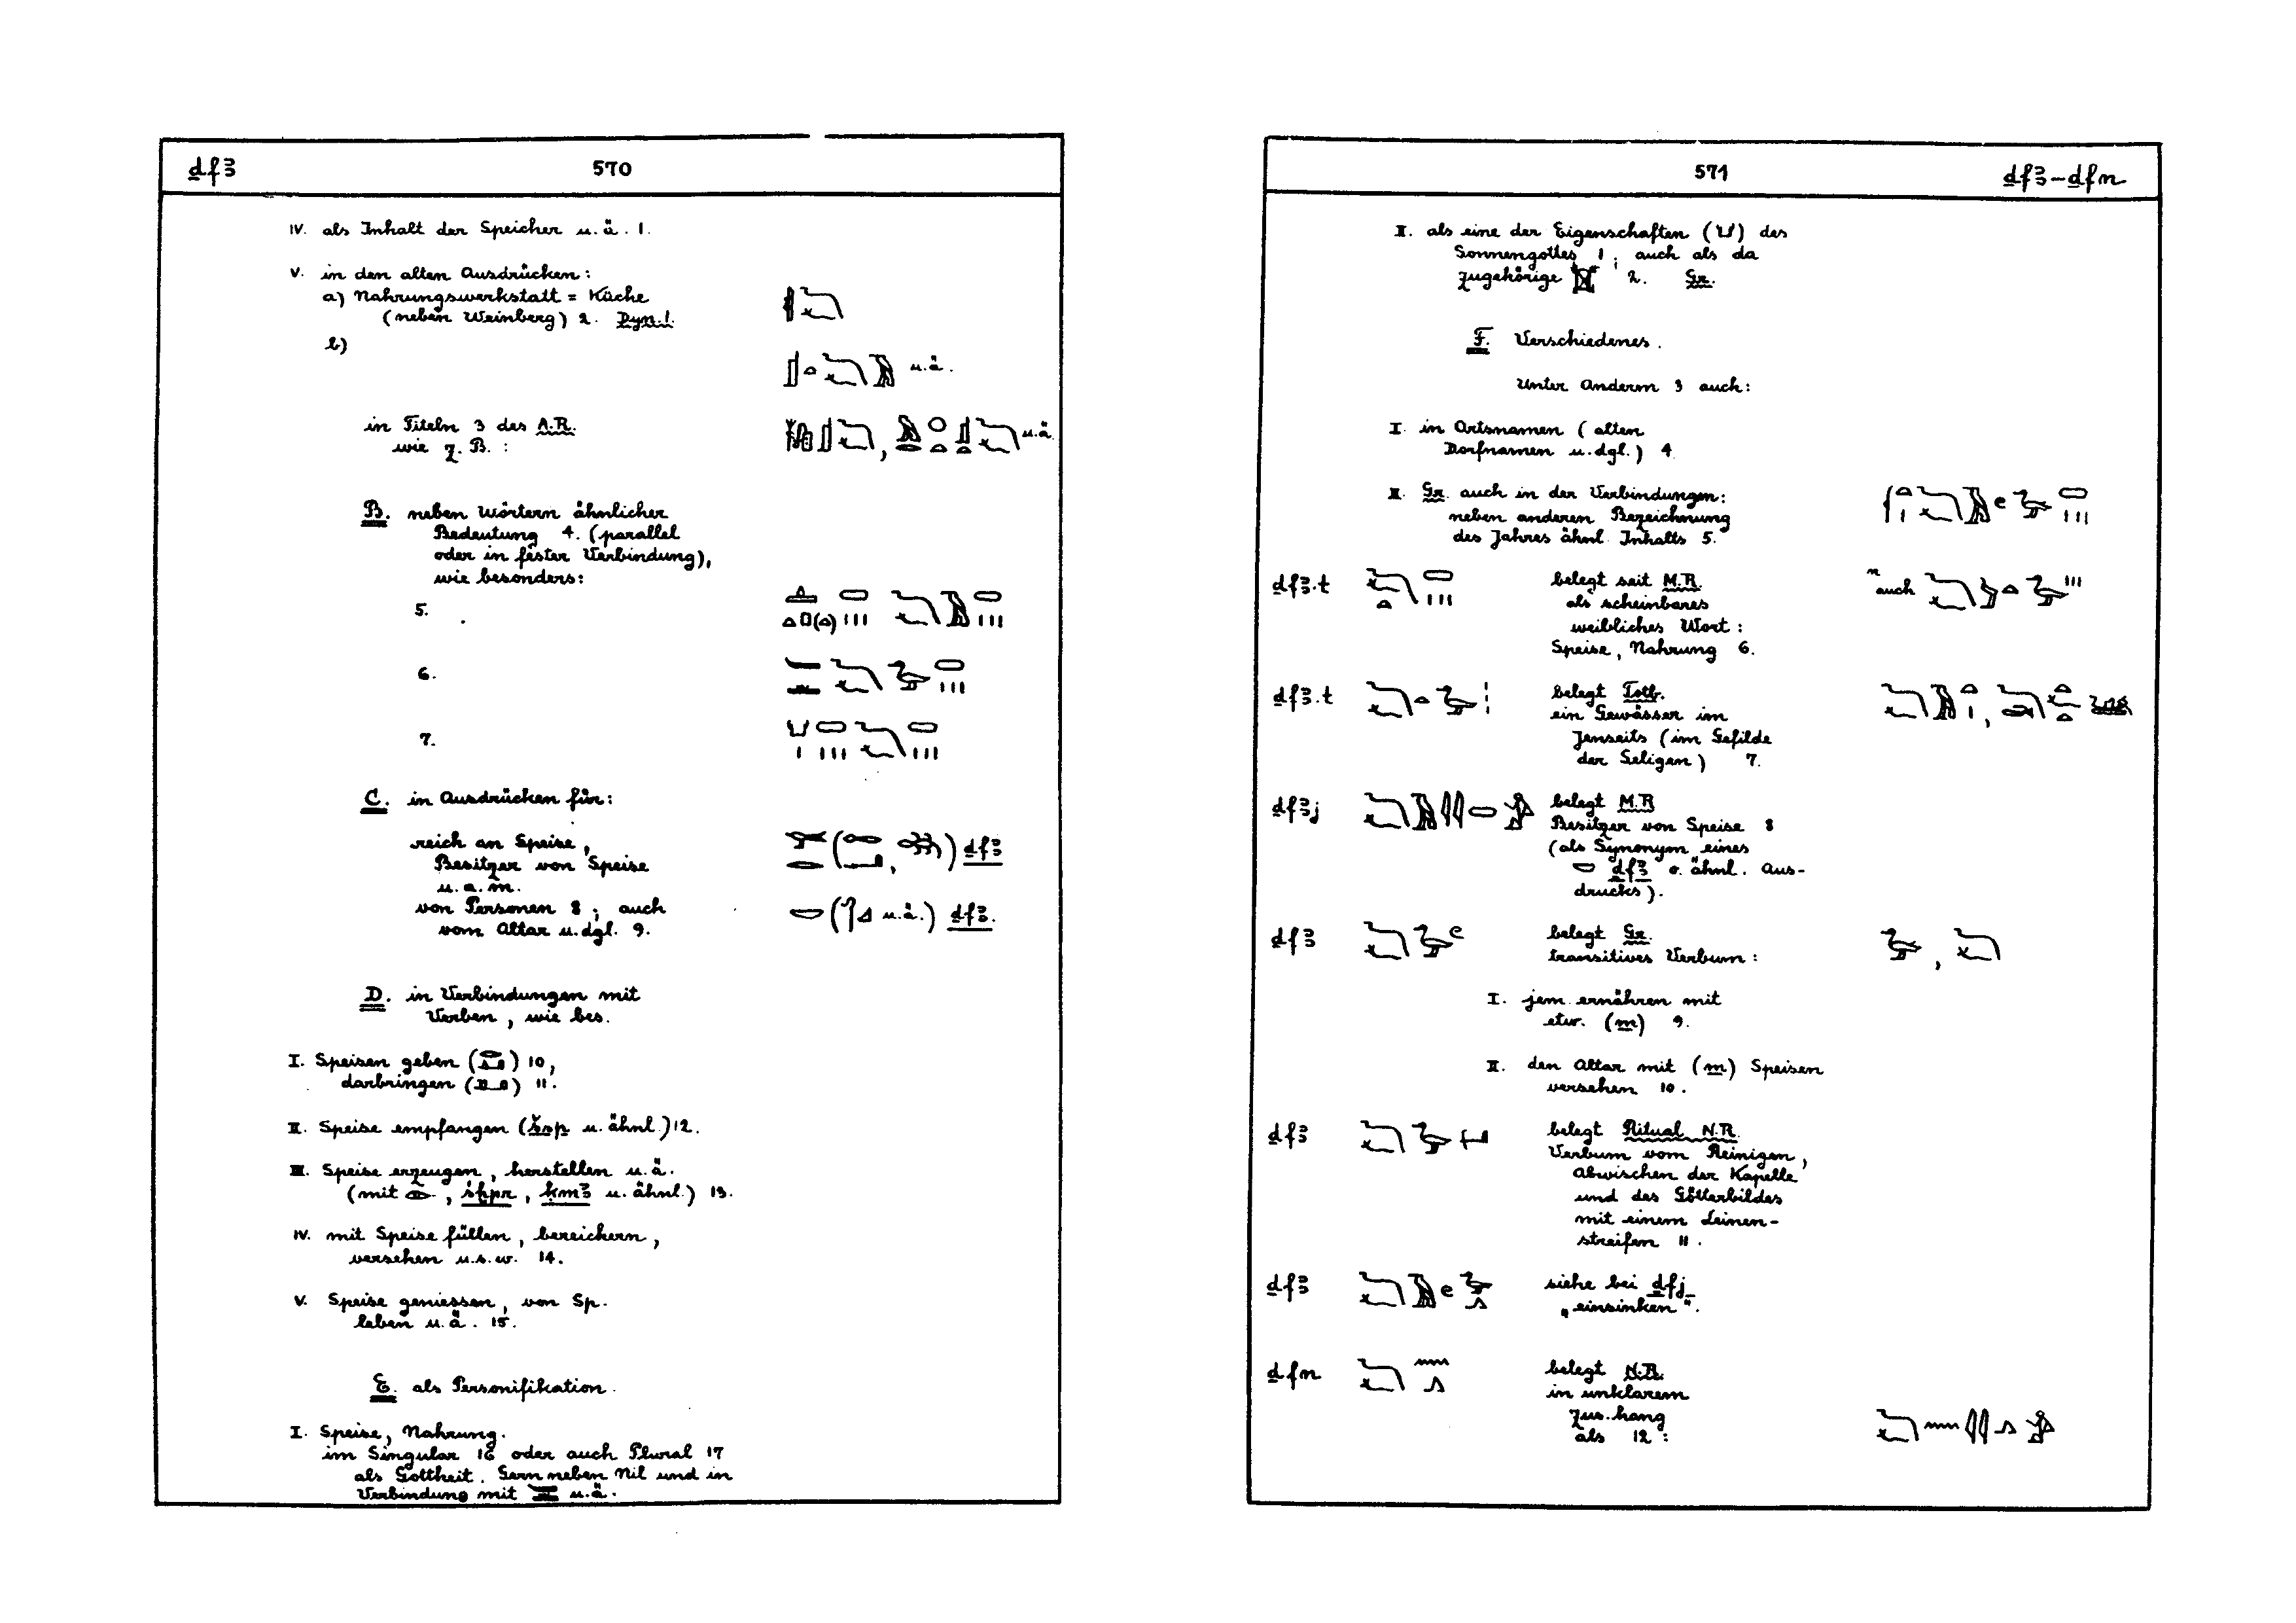 ḏfꜣ
570
IV. als Inhalt der Speicher u.ä. 1.
V. in den alten Ausdrücken:
a) Nahrungswerkstatt = Küche
(neben Weinberg) 2. Dyn. I.
b)
u.ä.
in Titeln 3 des A.R.
wie z.B.:
, u.ä.
B. neben Wörtern ähnlicher
Bedeutung 4. (parallel
oder in fester Verbindung),
wie besonders:
5.
6.
7.
C. in Ausdrücken für:
reich an Speise,
Besitzer von Speise
u.a.m.
( , ) ḏfꜣ
von Personen 8; auch
vom Altar u.dgl. 9.
( u.ä.) ḏfꜣ.
D. in Verbindungen mit
Verben, wie bes.
I. Speisen geben ( ) 10,
darbringen ( ) 11.
II. Speise empfangen (šsp u. ähnl.) 12.
III. Speise erzeugen, herstellen u.ä.
(mit , sḫpr, ḳmꜣ u. ähnl.) 13.
IV. mit Speise füllen, bereichern,
versehen u.s.w. 14.
V. Speise geniessen, von Sp.
leben u.ä. 15.
E. als Personifikation.
I. Speise, Nahrung.
im Singular 16 oder auch Plural 17
als Gottheit. Gern neben Nil und in
Verbindung mit u.ä.
571
ḏfꜣ – ḏfn
II. als eine der Eigenschaften ( ) des
Sonnengottes 1; auch als da
zugehörige 2. Gr.
F. Verschiedenes.
Unter Anderm 3 auch:
I. in Ortsnamen (alten
Dorfnamen u.dgl.) 4
II. Gr. auch in der Verbindungen:
neben anderen Bezeichnung
des Jahres ähnl. Inhalts 5.
ḏfꜣ.t belegt seit M.R. auch
als scheinbares
weibliches Wort:
Speise, Nahrung 6.
ḏfꜣ.t belegt Totb.
ein Gewässer im
Jenseits (im Gefilde
der Seligen) 7.
ḏfꜣj belegt M.R
Besitzer von Speise 8
(als Synonym eines
ḏfꜣ o. ähnl. Aus-
drucks).
ḏfꜣ belegt Gr.
transitives Verbum:
I. jem ernähren mit
etw. (m) 9.
II. den Altar mit (m) Speisen
versehen 10.
ḏfꜣ belegt Ritual N.R.
Verbum vom Reinigen,
Abwischen der Kapelle
und des Götterbildes
mit einem Leinen-
streifen 11.
ḏfꜣ siehe bei ḏfj
„einsinken“.
ḏfn belegt N.R.
in unklarem
Zus.hang
als 12: